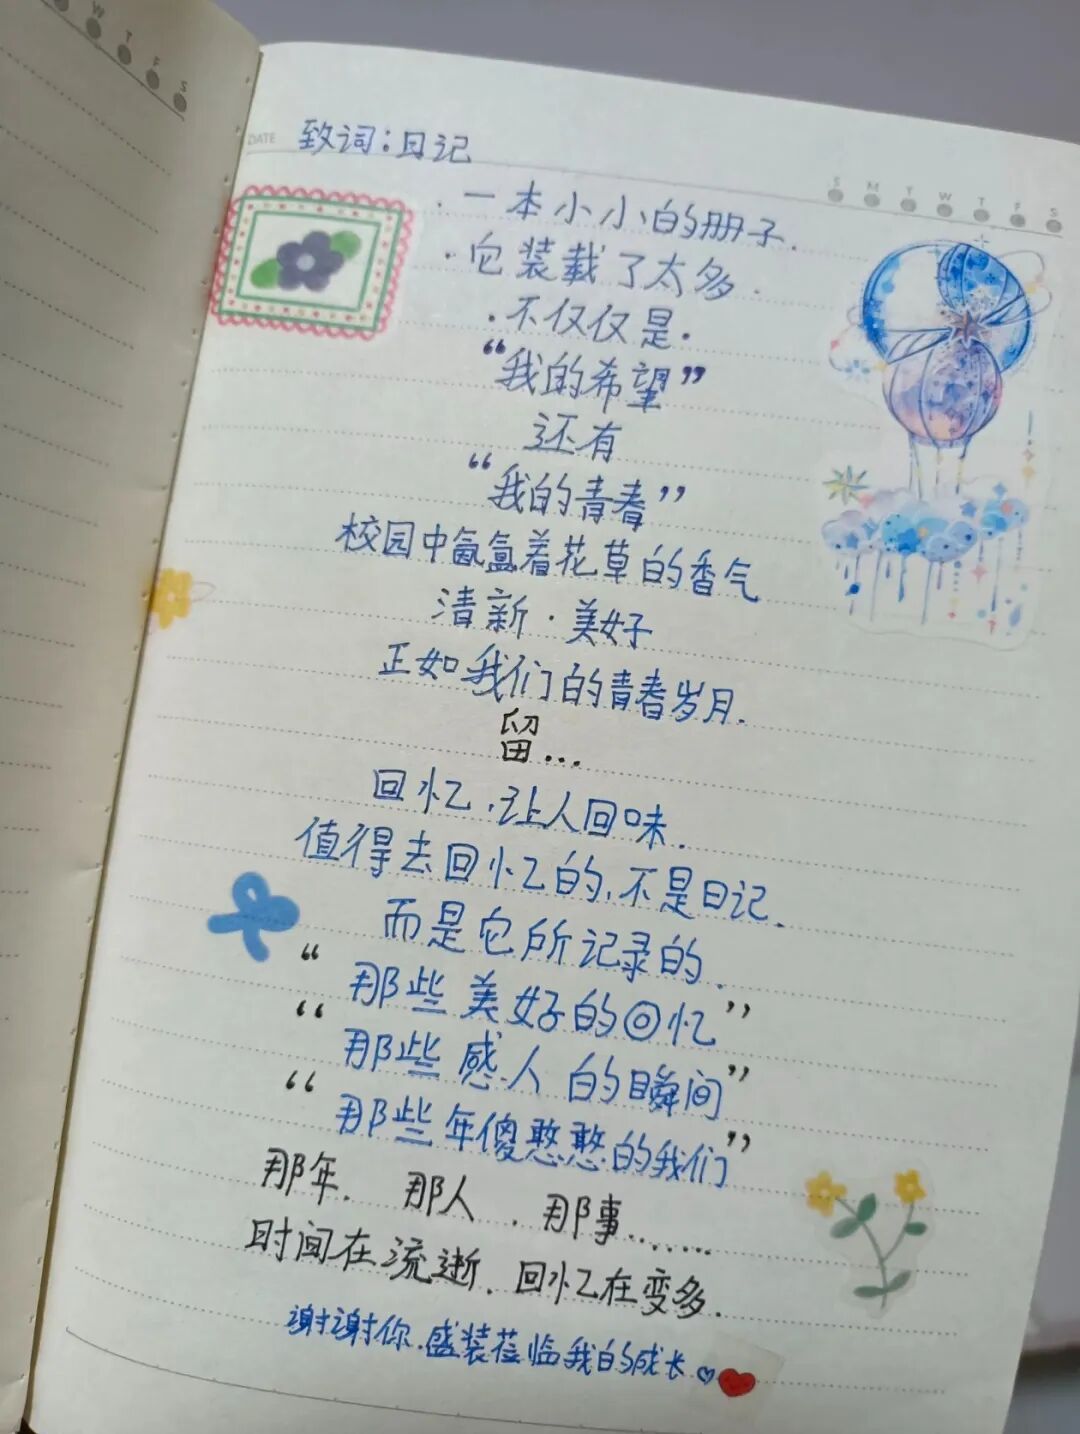 W T F S
DATE
致词：日记
S M T W T F S
·一本小小的册子.
·它装载了太多.
·不仅仅是·
“我的希望”
还有
“我的青春”
校园中氤氲着花草的香气
清新·美好
正如我们的青春岁月.
留...
回忆,让人回味.
值得去回忆的,不是日记.
而是它所记录的.
“那些美好的回忆”
“那些感人的瞬间”
“那些年傻憨憨的我们”
那年. 那人. 那事.......
时间在流逝.回忆在变多.
谢谢你.盛装莅临我的成长♡